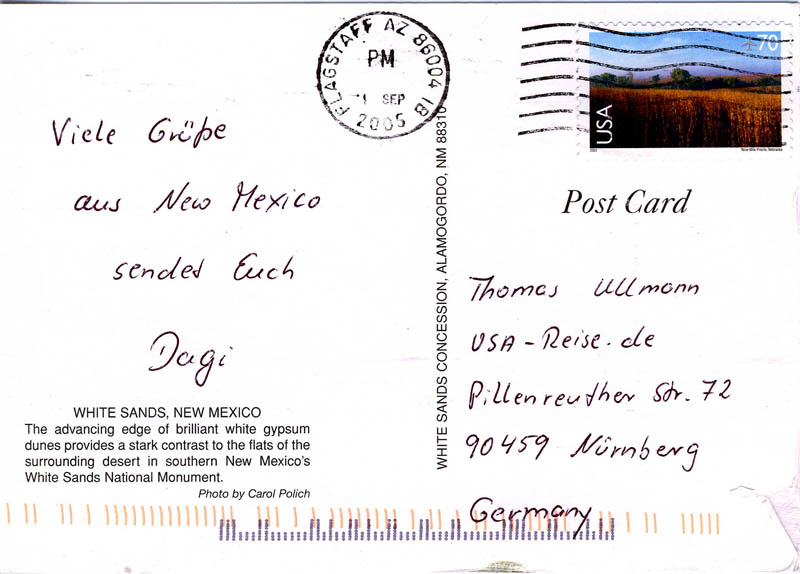 Viele Grüße
aus New Mexico
sendet Euch
Dagi
WHITE SANDS, NEW MEXICO
The advancing edge of brilliant white gypsum
dunes provides a stark contrast to the flats of the
surrounding desert in southern New Mexico's
White Sands National Monument.
Photo by Carol Polich
WHITE SANDS CONCESSION, ALAMOGORDO, NM 88310
FLAGSTAFF AZ 86004 18
PM
SEP
2005
70
USA
Nine-Mile Prairie, Nebraska
Post Card
Thomas Ullmann
USA-Reise.de
Pillenreuther Str. 72
90459 Nürnberg
Germany